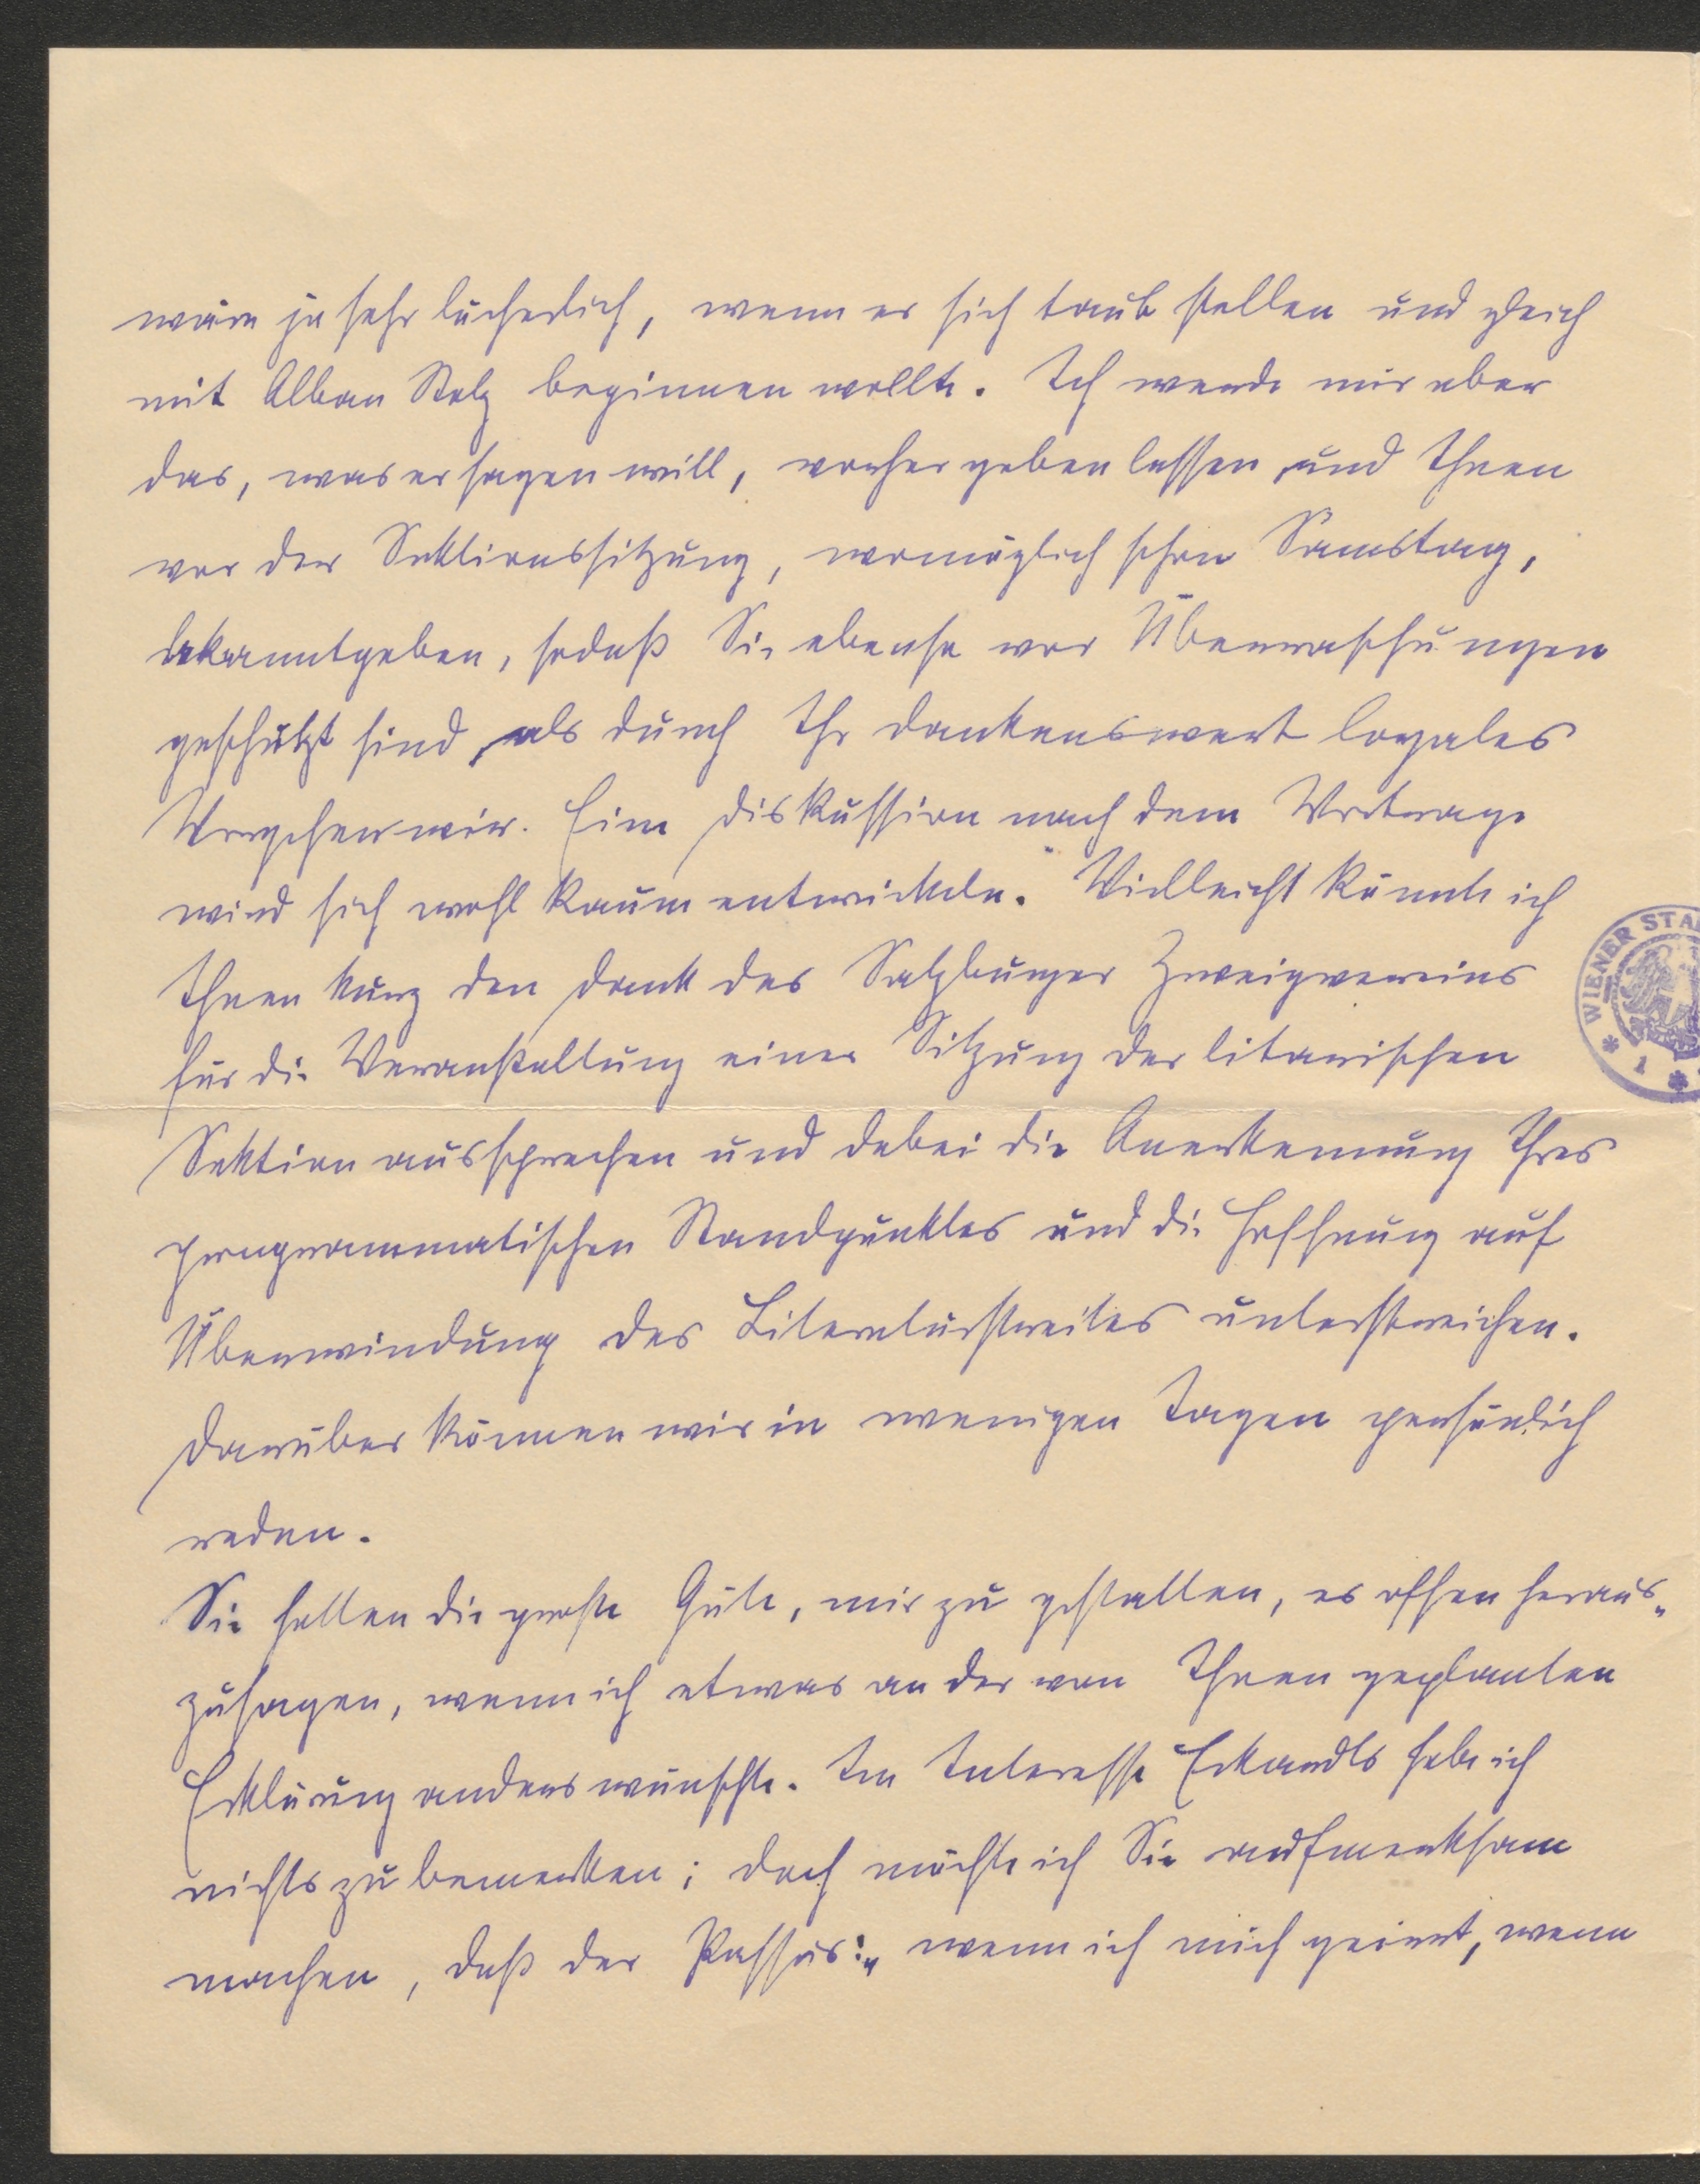 wäre ja sehr lächerlich, wenn er sich taub stellen und gleich
mit Alban Stolz beginnen wollte. Ich werde mir aber
das, was er sagen will, vorher geben lassen und Ihnen
vor der Sektionssitzung, womöglich schon Samstag,
bekanntgeben, sodaß Sie ebenso vor Überraschungen
geschützt sind, als durch Ihr dankenswert loyales
Vorgehen wir. Eine Diskussion nach dem Vortrage
wird sich wohl kaum entwickeln. Vielleicht könnte ich
Ihnen kurz den Dank des Salzburger Zweigvereins
für die Veranstaltung einer Sitzung der literarischen
Sektion aussprechen und dabei die Anerkennung Ihres
programmatischen Standpunktes und die Hoffnung auf
Überwindung des Literaturstreites unterstreichen.
Darüber können wir in wenigen Tagen persönlich
reden.
Sie hatten die große Güte, mir zu gestatten, es offen heraus-
zusagen, wenn ich etwas an der von Ihnen geplanten
Erklärung anders wünschte. Im Interesse Eckardts habe ich
nichts zu bemerken; doch möchte ich Sie aufmerksam
machen, daß der Passus: „wenn ich mich geirrt, wenn
WIENER STA
1